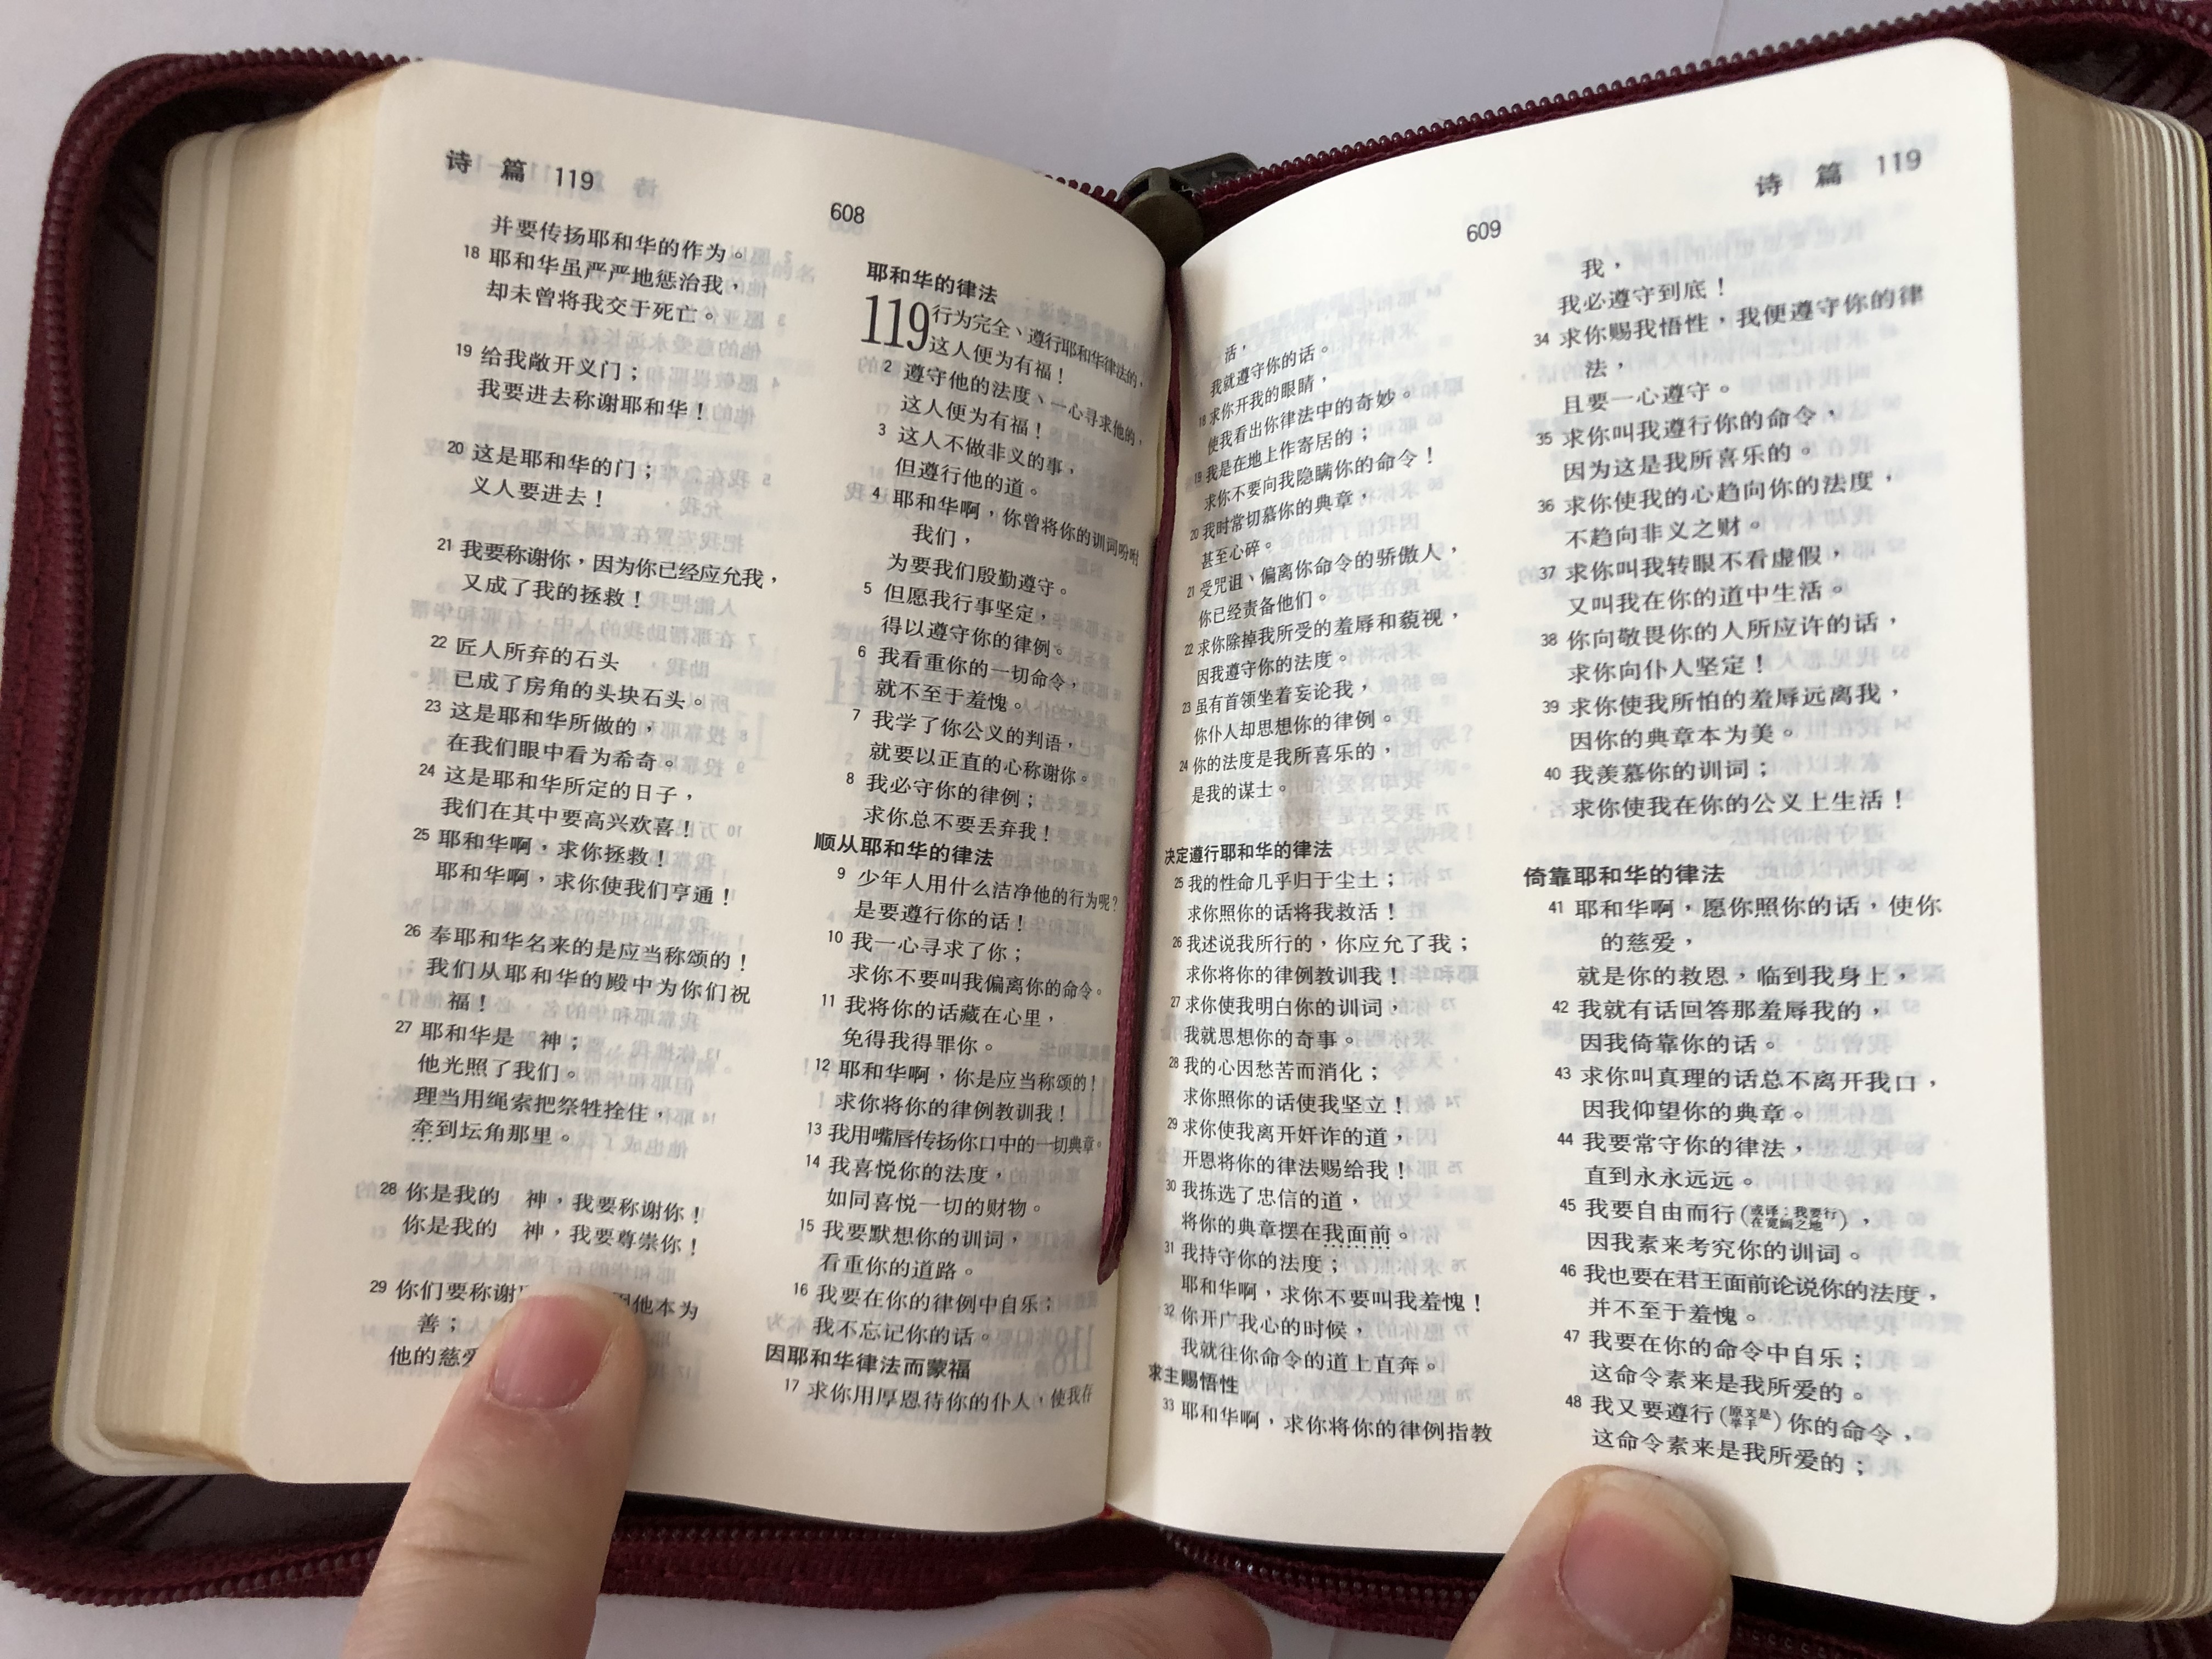 诗 篇 119
608
并要传扬耶和华的作为。
18 耶和华虽严严地惩治我，
却未曾将我交于死亡。
19 给我敞开义门；
我要进去称谢耶和华！
20 这是耶和华的门；
义人要进去！
21 我要称谢你，因为你已经应允我，
又成了我的拯救！
22 匠人所弃的石头
已成了房角的头块石头。
23 这是耶和华所做的，
在我们眼中看为希奇。
24 这是耶和华所定的日子，
我们在其中要高兴欢喜！
25 耶和华啊，求你拯救！
耶和华啊，求你使我们亨通！
26 奉耶和华名来的是应当称颂的！
我们从耶和华的殿中为你们祝
福！
27 耶和华是 神；
他光照了我们。
理当用绳索把祭牲拴住，
牵到坛角那里。
28 你是我的 神，我要称谢你！
你是我的 神，我要尊崇你！
29 你们要称谢 因他本为
善；
他的慈爱
耶和华的律法
119 行为完全、遵行耶和华律法的，
这人便为有福！
2 遵守他的法度、一心寻求他的，
这人便为有福！
3 这人不做非义的事，
但遵行他的道。
4 耶和华啊，你曾将你的训词吩咐
我们，
为要我们殷勤遵守。
5 但愿我行事坚定，
得以遵守你的律例。
6 我看重你的一切命令，
就不至于羞愧。
7 我学了你公义的判语，
就要以正直的心称谢你。
8 我必守你的律例；
求你总不要丢弃我！
顺从耶和华的律法
9 少年人用什么洁净他的行为呢？
是要遵行你的话！
10 我一心寻求了你；
求你不要叫我偏离你的命令。
11 我将你的话藏在心里，
免得我得罪你。
12 耶和华啊，你是应当称颂的！
求你将你的律例教训我！
13 我用嘴唇传扬你口中的一切典章。
14 我喜悦你的法度，
如同喜悦一切的财物。
15 我要默想你的训词，
看重你的道路。
16 我要在你的律例中自乐；
我不忘记你的话。
因耶和华律法而蒙福
17 求你用厚恩待你的仆人，使我存
609
诗 篇 119
活，
我就遵守你的话。
18 求你开我的眼睛，
使我看出你律法中的奇妙。
19 我是在地上作寄居的；
求你不要向我隐瞒你的命令！
20 我时常切慕你的典章，
甚至心碎。
21 受咒诅、偏离你命令的骄傲人，
你已经责备他们。
22 求你除掉我所受的羞辱和藐视，
因我遵守你的法度。
23 虽有首领坐着妄论我，
你仆人却思想你的律例。
24 你的法度是我所喜乐的，
是我的谋士。
决定遵行耶和华的律法
25 我的性命几乎归于尘土；
求你照你的话将我救活！
26 我述说我所行的，你应允了我；
求你将你的律例教训我！
27 求你使我明白你的训词，
我就思想你的奇事。
28 我的心因愁苦而消化；
求你照你的话使我坚立！
29 求你使我离开奸诈的道，
开恩将你的律法赐给我！
30 我拣选了忠信的道，
将你的典章摆在我面前。
31 我持守你的法度；
耶和华啊，求你不要叫我羞愧！
32 你开广我心的时候，
我就往你命令的道上直奔。
求主赐悟性
33 耶和华啊，求你将你的律例指教
我，
我必遵守到底！
34 求你赐我悟性，我便遵守你的律
法，
且要一心遵守。
35 求你叫我遵行你的命令，
因为这是我所喜乐的。
36 求你使我的心趋向你的法度，
不趋向非义之财。
37 求你叫我转眼不看虚假，
又叫我在你的道中生活。
38 你向敬畏你的人所应许的话，
求你向仆人坚定！
39 求你使我所怕的羞辱远离我，
因你的典章本为美。
40 我羡慕你的训词；
求你使我在你的公义上生活！
倚靠耶和华的律法
41 耶和华啊，愿你照你的话，使你
的慈爱，
就是你的救恩，临到我身上，
42 我就有话回答那羞辱我的，
因我倚靠你的话。
43 求你叫真理的话总不离开我口，
因我仰望你的典章。
44 我要常守你的律法，
直到永永远远。
45 我要自由而行（或译：我要行在宽阔之地），
因我素来考究你的训词。
46 我也要在君王面前论说你的法度，
并不至于羞愧。
47 我要在你的命令中自乐；
这命令素来是我所爱的。
48 我又要遵行（原文是举手）你的命令，
这命令素来是我所爱的；